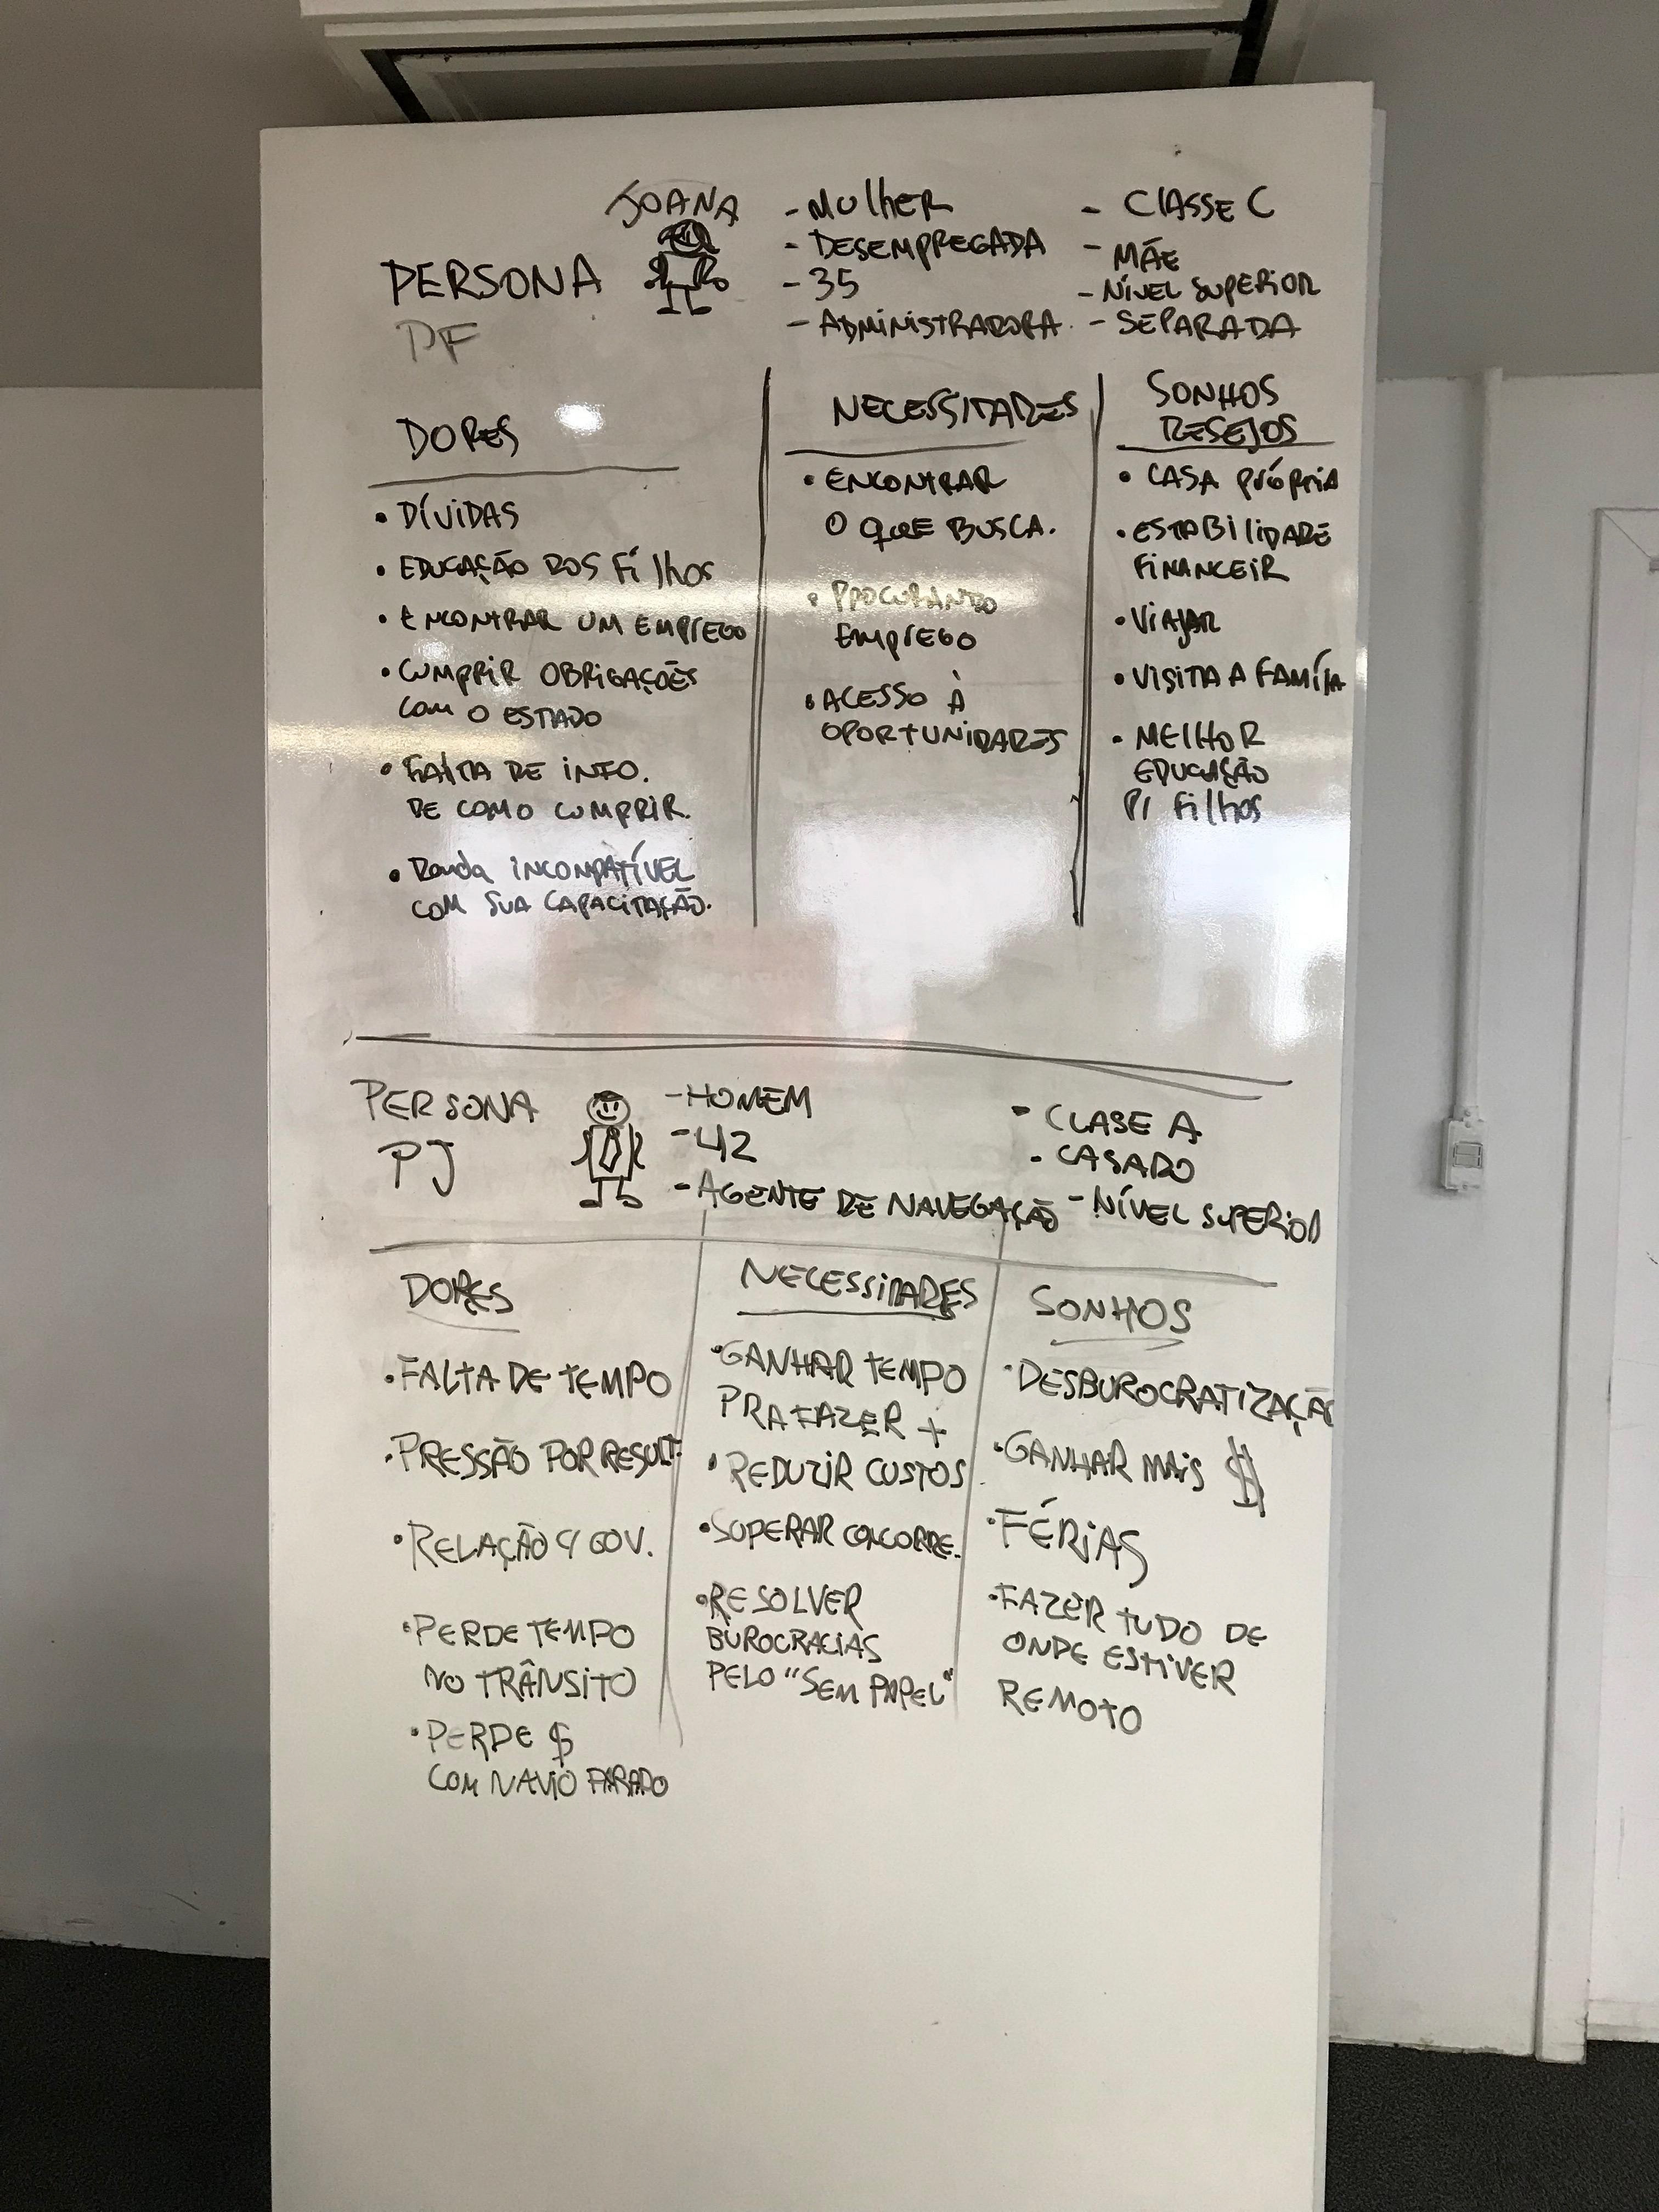 JOANA
PERSONA
PF
- MULHER
- DESEMPREGADA
- 35
- ADMINISTRADORA
- CLASSE C
- MÃE
- NÍVEL SUPERIOR
- SEPARADA
DORES
• DÍVIDAS
• EDUCAÇÃO DOS FILHOS
• ENCONTRAR UM EMPREGO
• CUMPRIR OBRIGAÇÕES
COM O ESTADO
• FALTA DE INFO.
DE COMO CUMPRIR.
• Renda INCOMPATÍVEL
COM SUA CAPACITAÇÃO.
NECESSIDADES
• ENCONTRAR
O QUE BUSCA.
• PROCURANDO
EMPREGO
• ACESSO À
OPORTUNIDADES
SONHOS
DESEJOS
• CASA PRÓPRIA
• ESTABILIDADE
FINANCEIR
• VIAJAR
• VISITA A FAMÍLIA
• MELHOR
EDUCAÇÃO
P/ FILHOS
PERSONA
PJ
- HOMEM
- 42
- AGENTE DE NAVEGAÇÃO
- CLASE A
- CASADO
- NÍVEL SUPERIOR
DORES
• FALTA DE TEMPO
• PRESSÃO POR RESULT.
• RELAÇÃO C/ GOV.
• PERDE TEMPO
NO TRÂNSITO
• PERDE $
COM NAVIO PARADO
NECESSIDADES
• GANHAR TEMPO
PRA FAZER +
• REDUZIR CUSTOS
• SUPERAR CONCORRE.
• RESOLVER
BUROCRACIAS
PELO "SEM PAPEL"
SONHOS
• DESBUROCRATIZAÇÃO
• GANHAR MAIS $
• FÉRIAS
• FAZER TUDO DE
ONDE ESTIVER
REMOTO